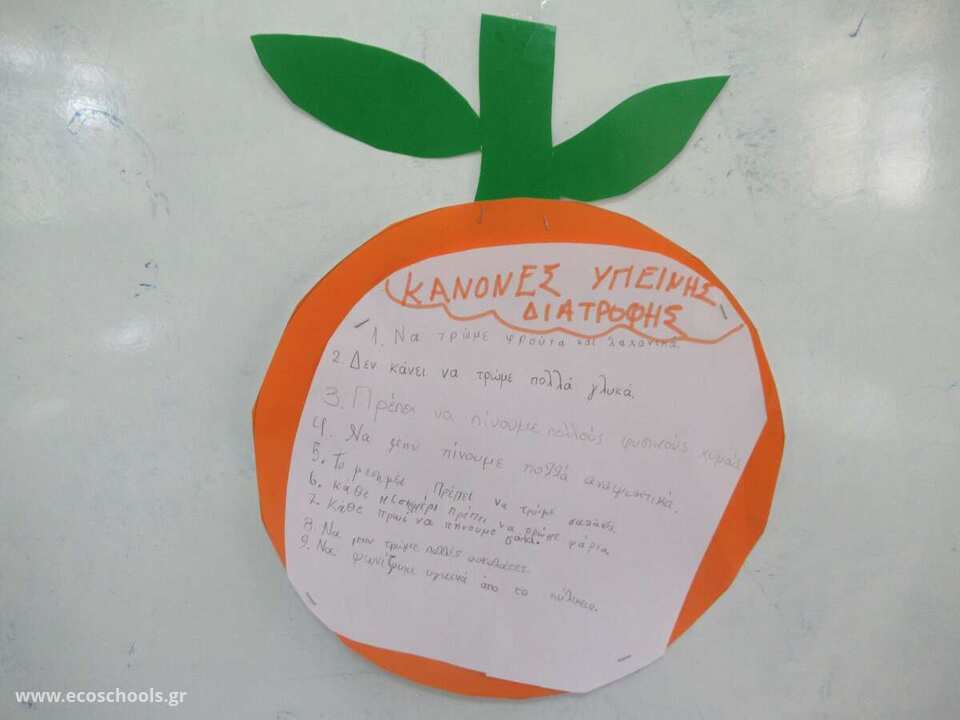 ΚΑΝΟΝΕΣ ΥΠΕΙΝΗΣ
ΔΙΑΤΡΟΦΗΣ
1. Να τρώμε φρούτα και λαχανικά.
2. Δεν κάνει να τρώμε πολλά γλυκά.
3. Πρέπει να πίνουμε πολλούς φυσικούς χυμούς
4. Να μην πίνουμε πολλά αναψυκτικά.
5. Το μεσημέρι Πρέπει να τρώμε σαλάτες.
6. Κάθε μεσημέρι πρέπει να τρώμε ψάρια.
7. Κάθε πρωί να πίνουμε γάλα.
8. Να μην τρώμε πολλές σοκολάτες.
9. Να ψωνίζουμε υγιεινά από το κυλικείο.
www.ecoschools.gr